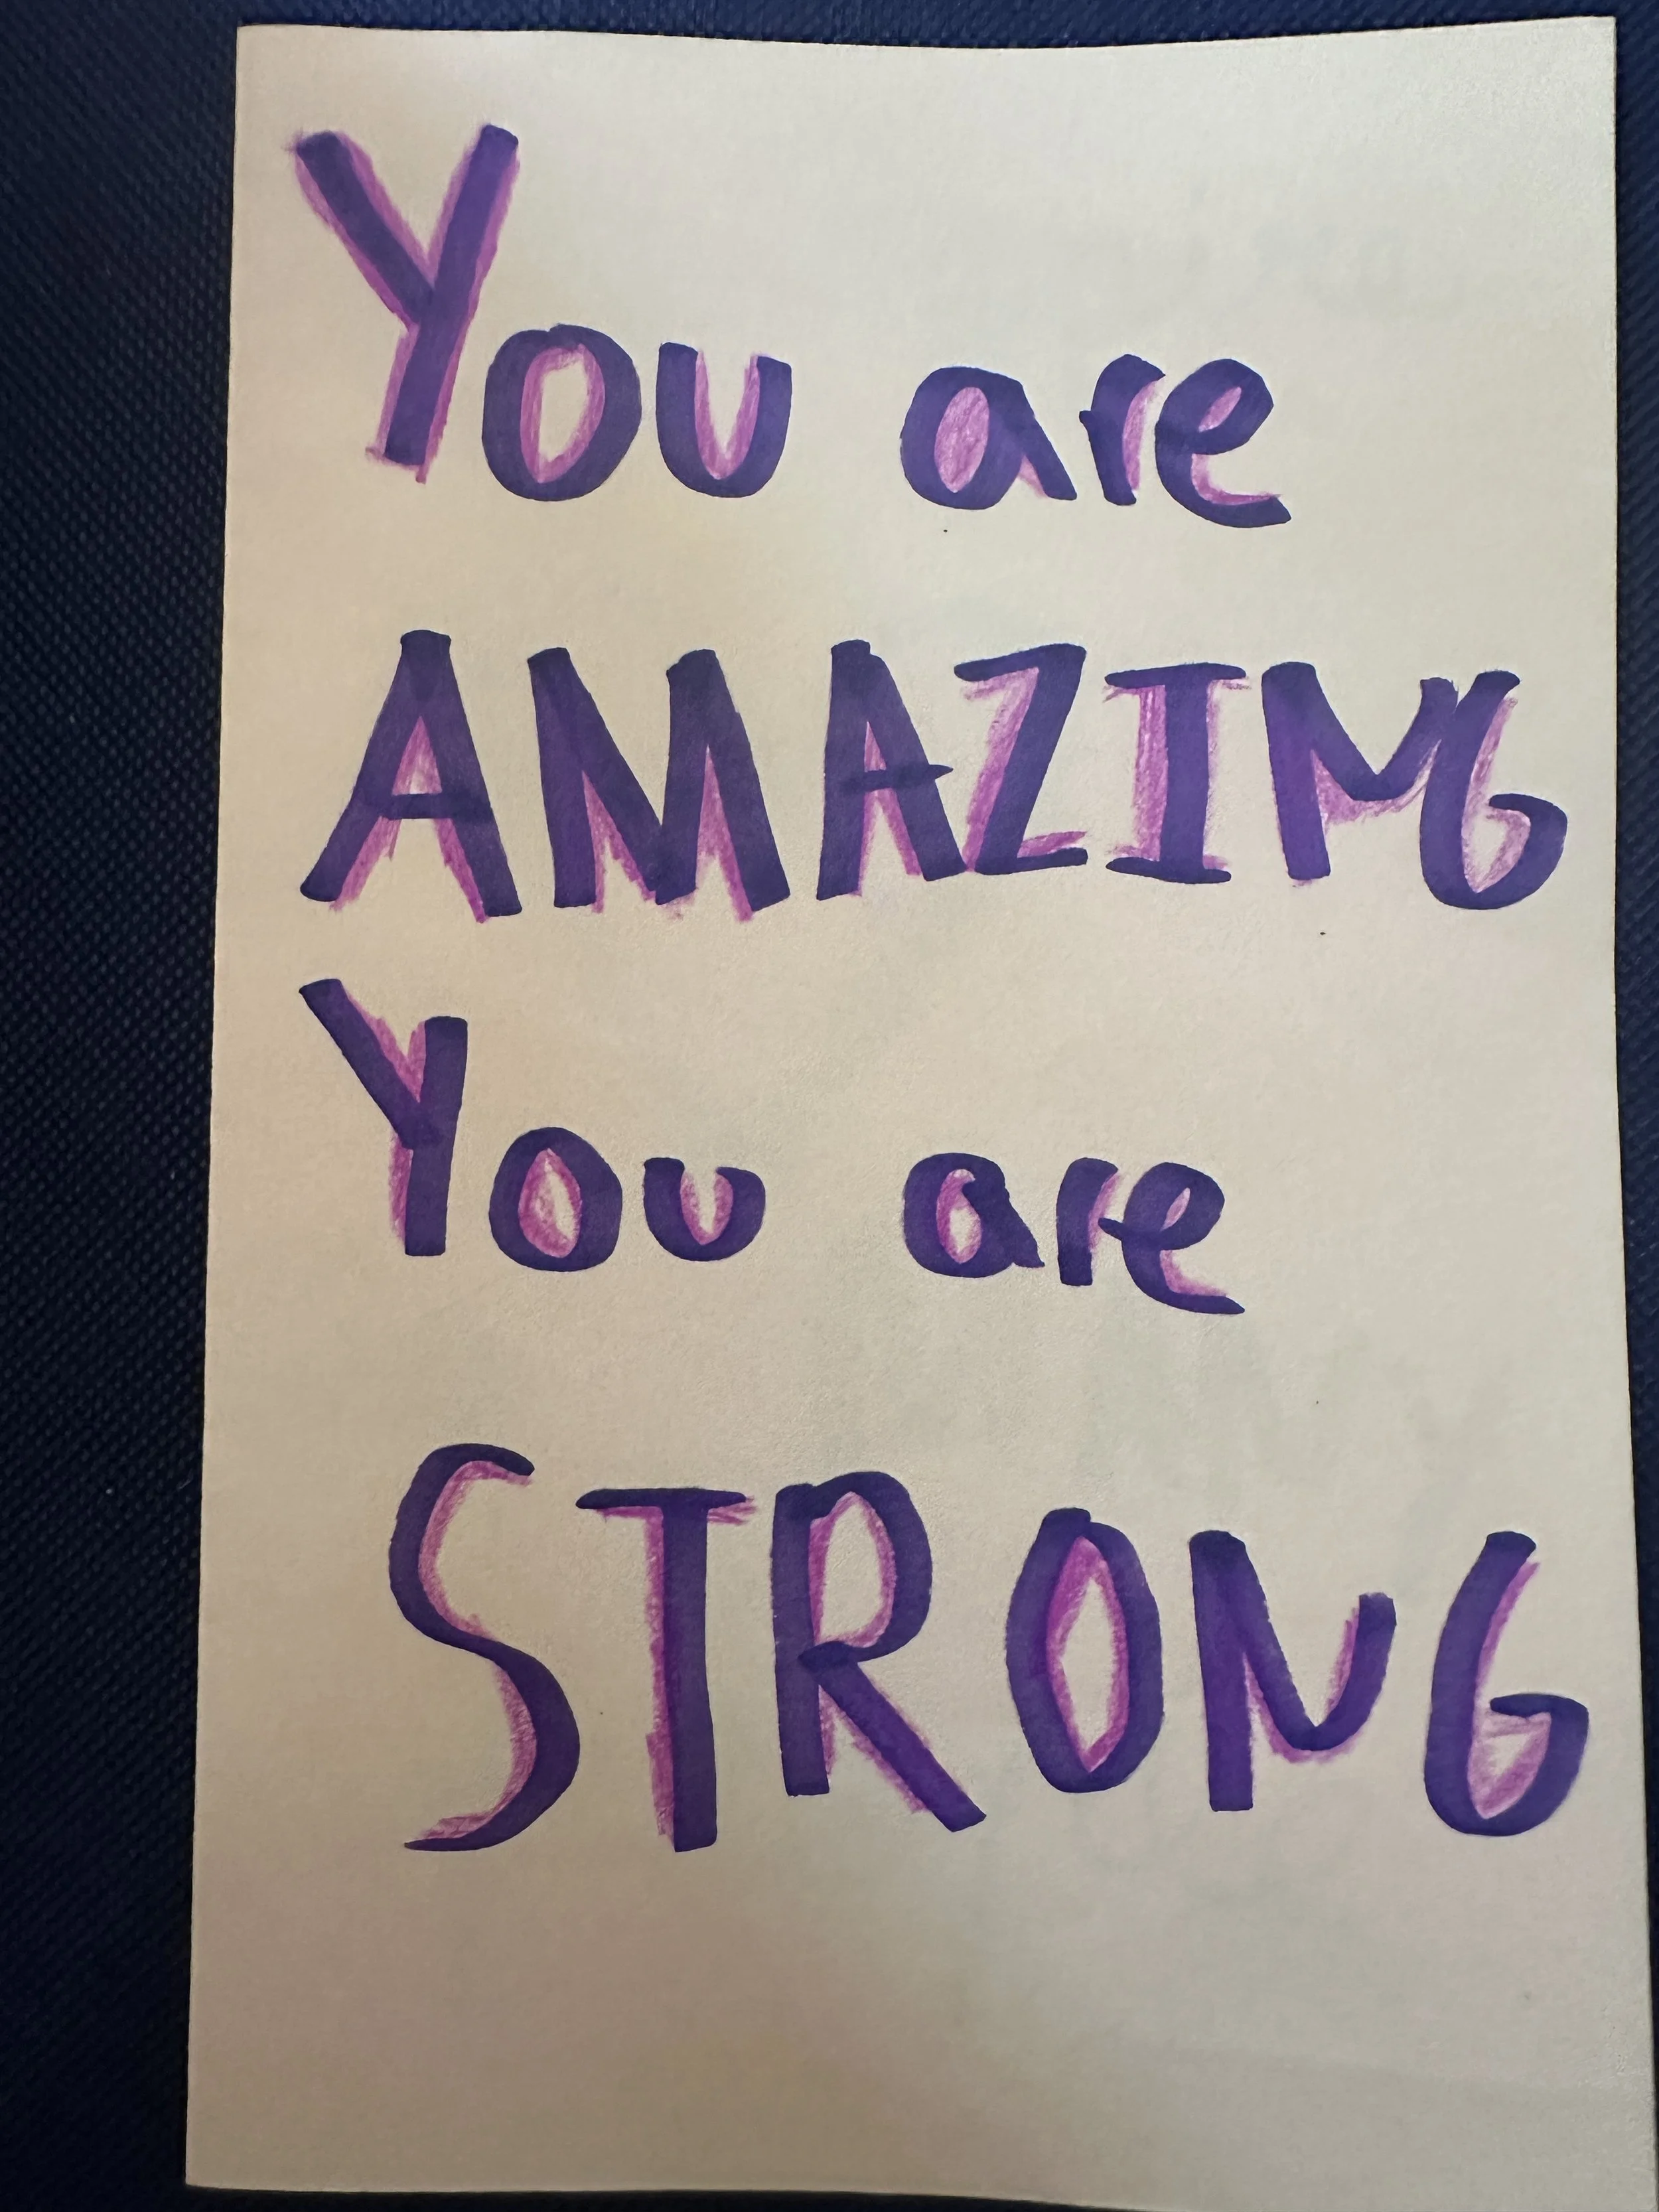 You are
AMAZING
You are
STRONG